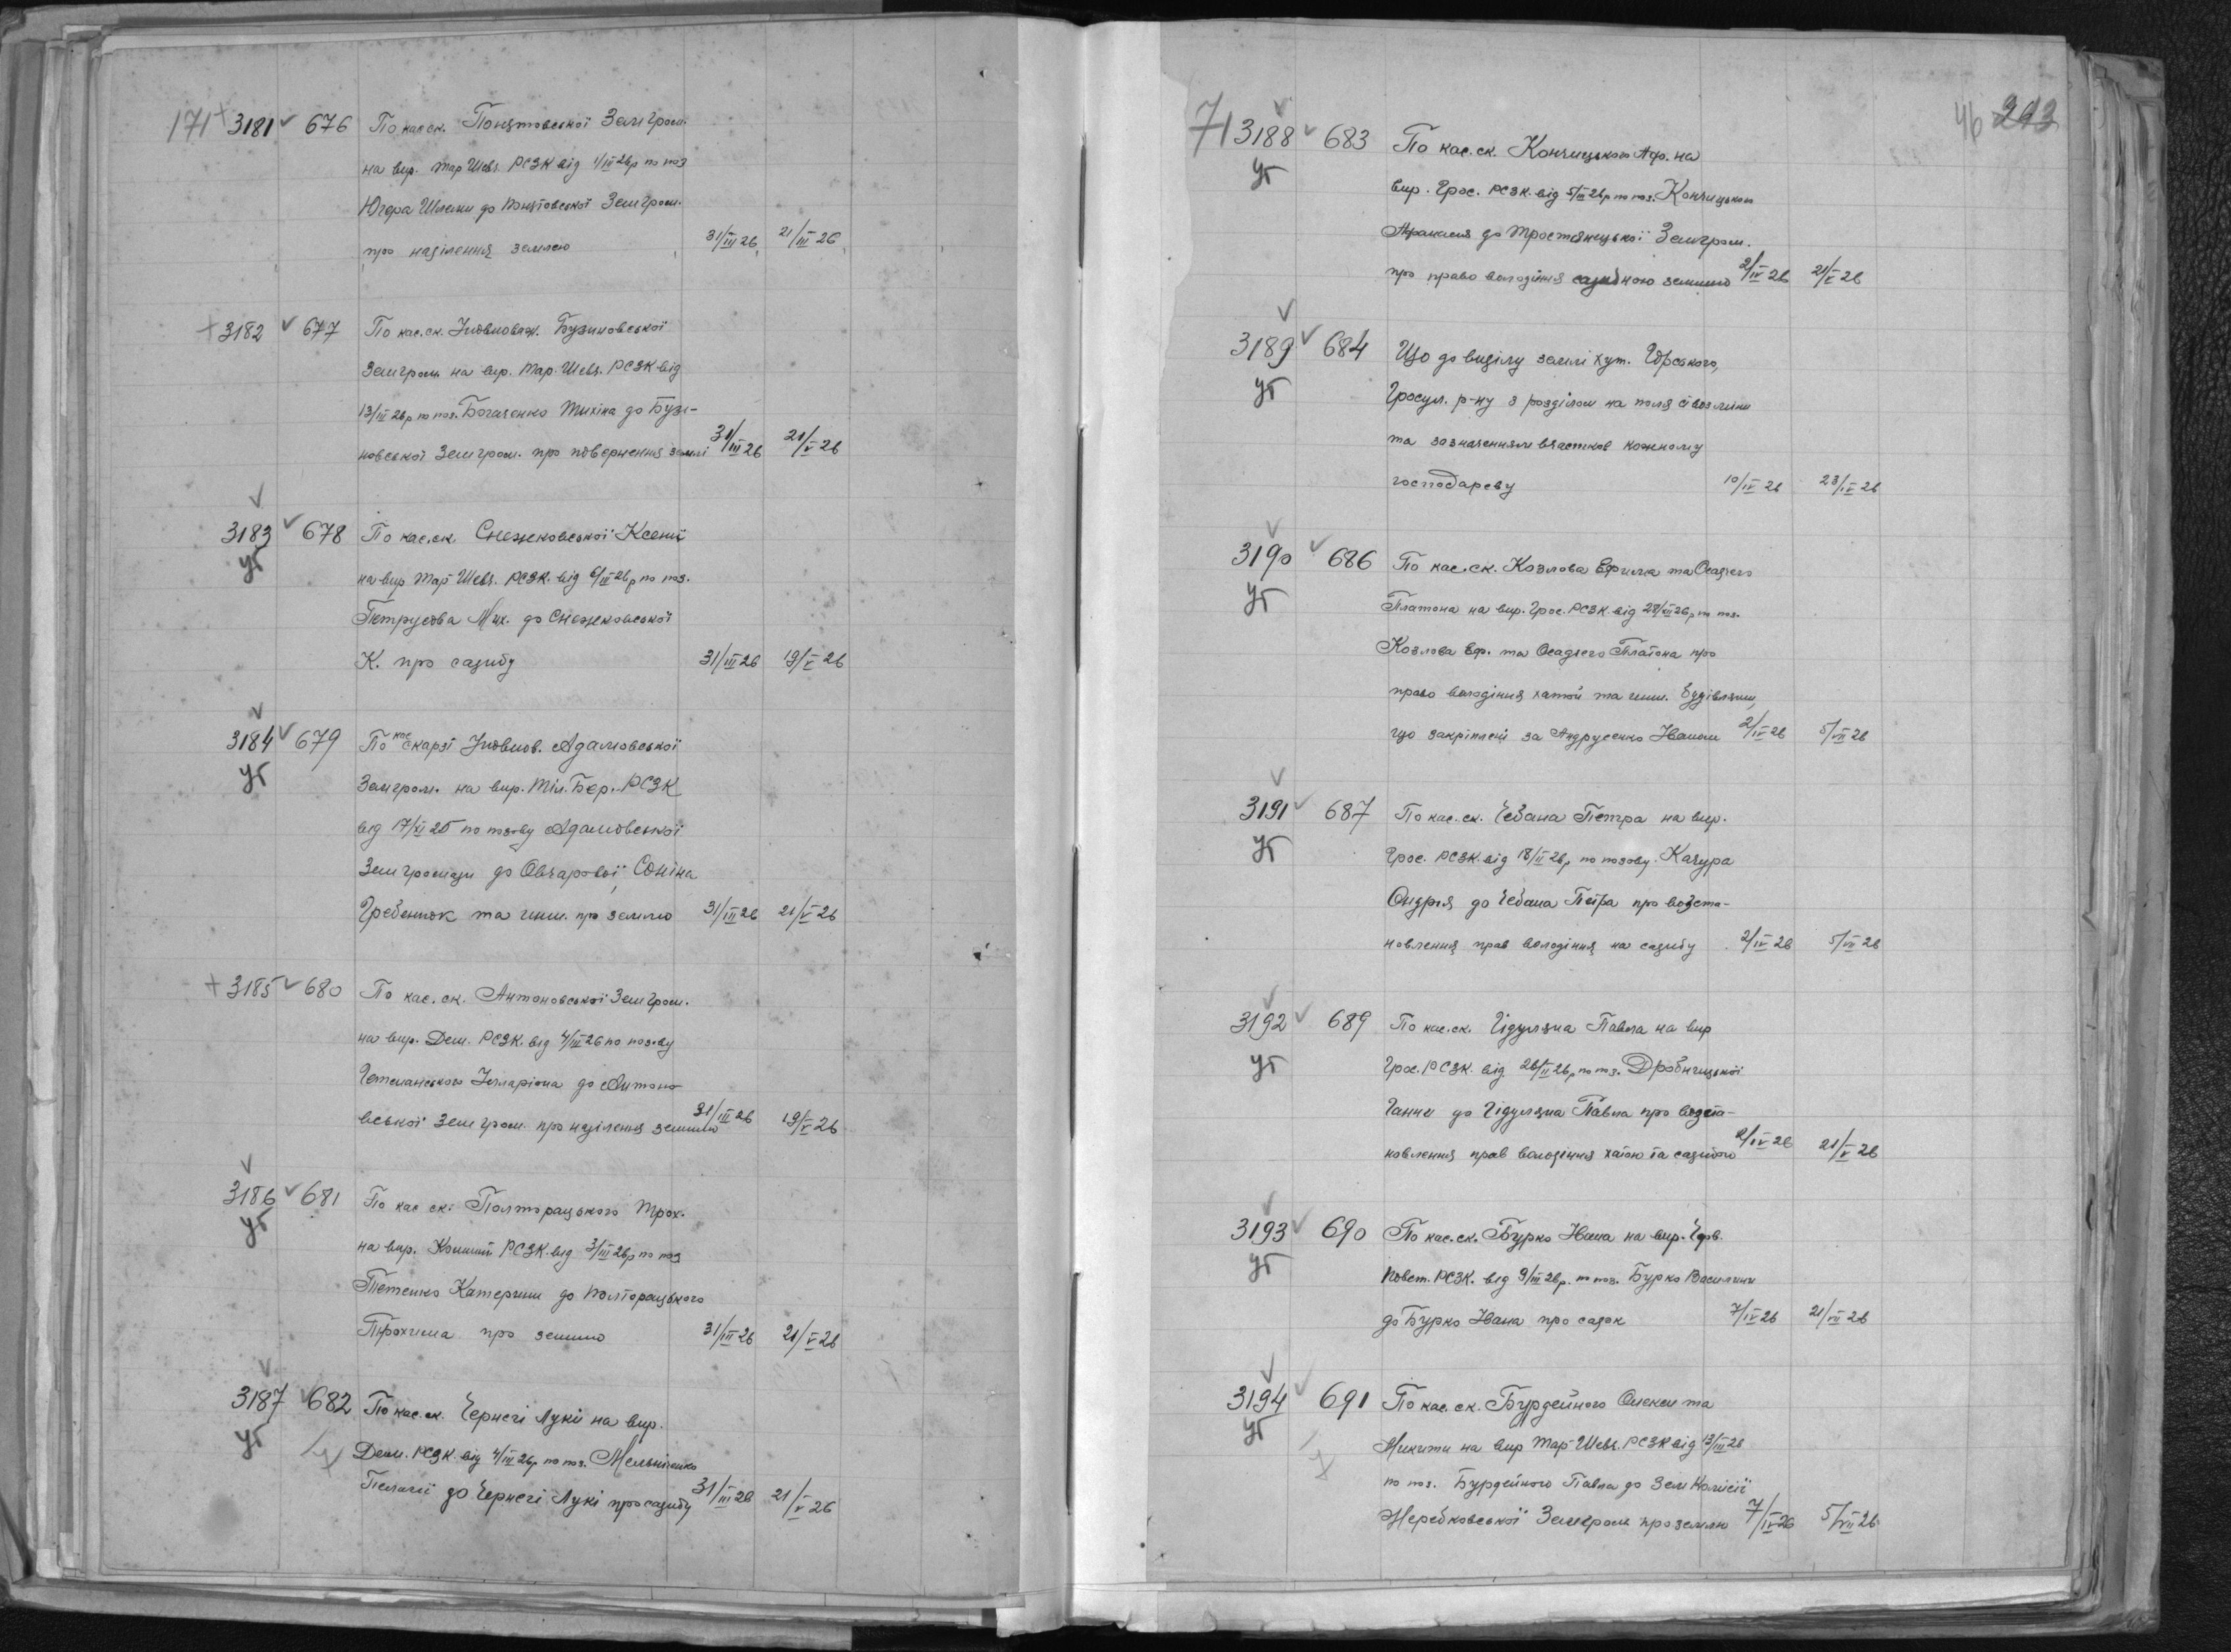 171 + 3181 ✓ 676 По кас. ск. Понятовської Зем Гром.
на вир. Тар Шевч. РСЗК від 1/III 26 р по поз
Югера Шлеми до Понятовської Зем Гром.
про наділення землею 31/III 26 21/III 26
+ 3182 ✓ 677 По кас. ск. Уповноваж. Бузиновської
Земгром. на вир. Тар. Шевч. РСЗК від
13/III 26 р по поз. Богаченко Тихіна до Бузи-
новської Зем гром. про повернення землі 31/III 26 21/V 26
✓
3183 ✓ 678 По кас. ск. Снежковської Ксенії
УГ
на вир Тар Шевч. РСЗК. від 6/III 26 р по поз.
Петрусова Мих. до Снежковської
К. про садибу 31/III 26 19/V 26
✓
3184 ✓ 679 По кас скарзі Уповнов. Адамовської
УГ
Земгром. на вир. Тіл. Бер. РСЗК
від 17/XI 25 по позову Адамовської
Зем громади до Овчарової, Соніна
Гребенюк та инш. про землю 31/III 26 21/V 26
+ 3185 ✓ 680 По кас. ск. Антоновської Зем Гром.
на вир. Дем. РСЗК. від 4/III 26 по позову
Гетманського Ілларіона до Антоно-
вської Зем гром. про наділення землею 31/III 26 19/V 26
✓
3186 ✓ 681 По кас ск. Полторацького Трох.
УГ
на вир. РСЗК від 3/III 26 р по поз
Тетенко Катерини до Полторацького
Трохима про землю 31/III 26 21/V 26
✓
3187 ✓ 682 По кас. ск. Чернегі Луки на вир.
УГ
Дем. РСЗК від 4/III 26 р по поз. Мельніченко
Пелагії до Чернегі Лукі про садибу 31/III 26 21/V 26
46 243
71 3188 ✓ 683 По кас. ск. Кончицького Аф. на
УГ
вир. Грос. РСЗК. від 5/III 26 р по поз. Кончицького
Афанасія до Тростянецької Земгром.
про право володіння садибною землею 2/IV 26 21/V 26
✓
3189 ✓ 684 Що до виділу землі хут. Юрського,
УГ
Гросул. р-ну з розділом на поля сівозміни
та зазначенням вчастков кожному
господареву 10/IV 26 23/IV 26
✓
3190 ✓ 686 По кас. ск. Козлова Ефима та Осадчего
УГ
Платона на вир. Грос. РСЗК від 28/XII 26 р по поз.
Козлова Еф. та Осадчего Платона про
право володіння хатой та инш. будівлями,
що закріплені за Андрусенко Іваном 2/IV 26 5/VII 26
✓
3191 ✓ 687 По кас. ск. Чебана Петра на вир.
УГ
Грос. РСЗК. від 18/II 26 р по позову Качура
Ондрія до Чебана Петра про возста-
новлення прав володіння на садибу 2/IV 26 5/VII 26
✓
3192 ✓ 689 По кас. ск. Гідуляна Павла на вир
УГ
Грос. РСЗК. від 26/II 26 р по поз. Дробницької
Ганни до Гідуляна Павла про возста-
новлення прав володіння хатою та садибою 2/IV 26 21/V 26
✓
3193 ✓ 690 По кас. ск. Бурко Івана на вир. Черв.
УГ
Повст. РСЗК. від 9/III 26 р. по поз. Бурко Василини
до Бурко Івана про садок 7/IV 26 21/VII 26
✓
3194 ✓ 691 По кас. ск. Бурдейного Олекси та
УГ
Микити на вир Тар-Шевч. РСЗК від 13/III 26
по поз. Бурдейного Павла до Зем Комісії
Жеребковської Земгром про землю 7/IV 26 5/VII 26